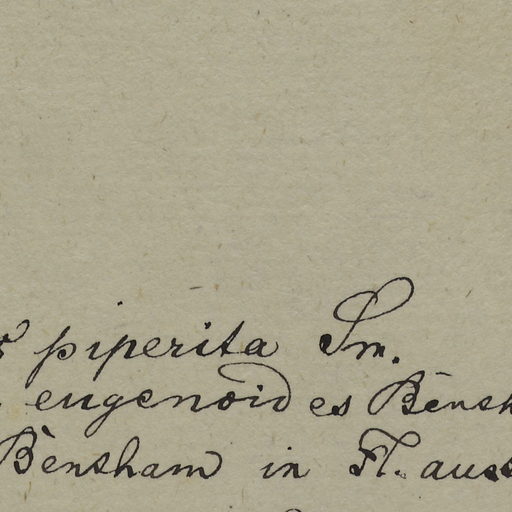 piperita Sm.
eugenoides Bensh
Bensham in Fl. aus